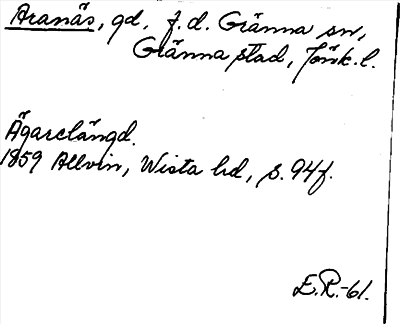 Aranäs, gd, f.d. Gränna sn,
Gränna stad, Jönk.l.
Ägarelängd.
1859 Allvin, Wista hd, s. 94f.
E.R.-61.